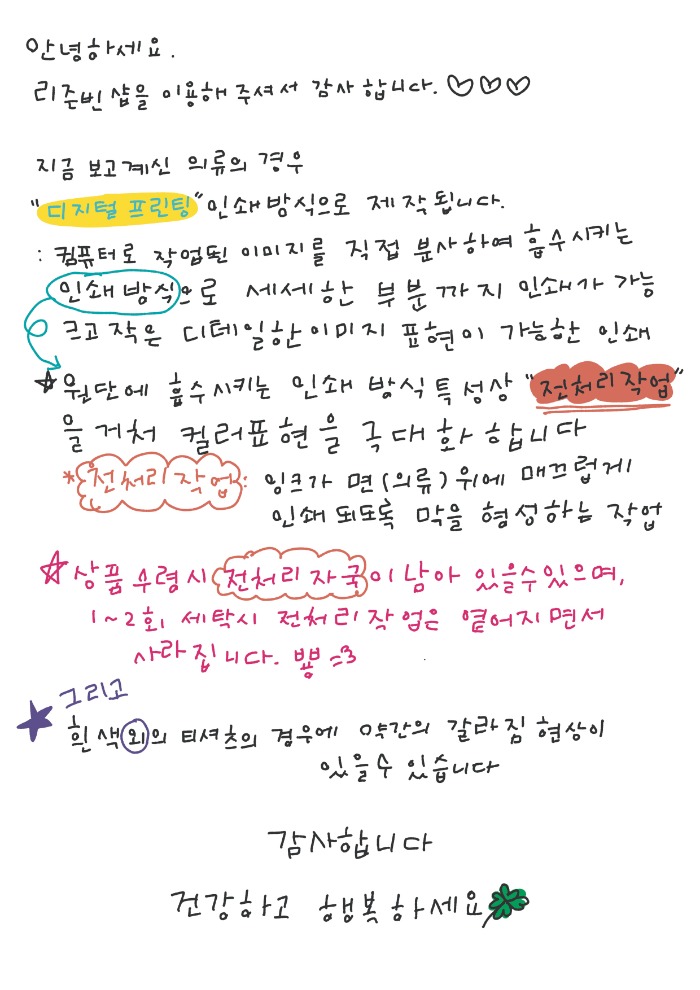 안녕하세요.
리즌빈 샵을 이용해 주셔서 감사 합니다. ♡♡♡
지금 보고계신 의류의 경우
"디지털 프린팅" 인쇄방식으로 제작 됩니다.
: 컴퓨터로 작업된 이미지를 직접 분사하여 흡수시키는
인쇄방식으로 세세한 부분까지 인쇄가 가능
크고 작은 디테일한이미지 표현이 가능한 인쇄
☆ 원단에 흡수시키는 인쇄 방식 특성상 "전처리작업"
을 거쳐 컬러표현을 극대화 합니다
* 전처리작업: 잉크가 면(의류) 위에 매끄럽게
인쇄 되도록 막을 형성하는 작업
☆ 상품 수령시 전처리 자국이 남아 있을수있으며,
1~2회 세탁시 전처리 작업은 옅어지면서
사라집니다. 뿅 =3
★ 그리고
흰색외의 티셔츠의 경우에 약간의 갈라짐 현상이
있을수 있습니다
감사합니다
건강하고 행복하세요